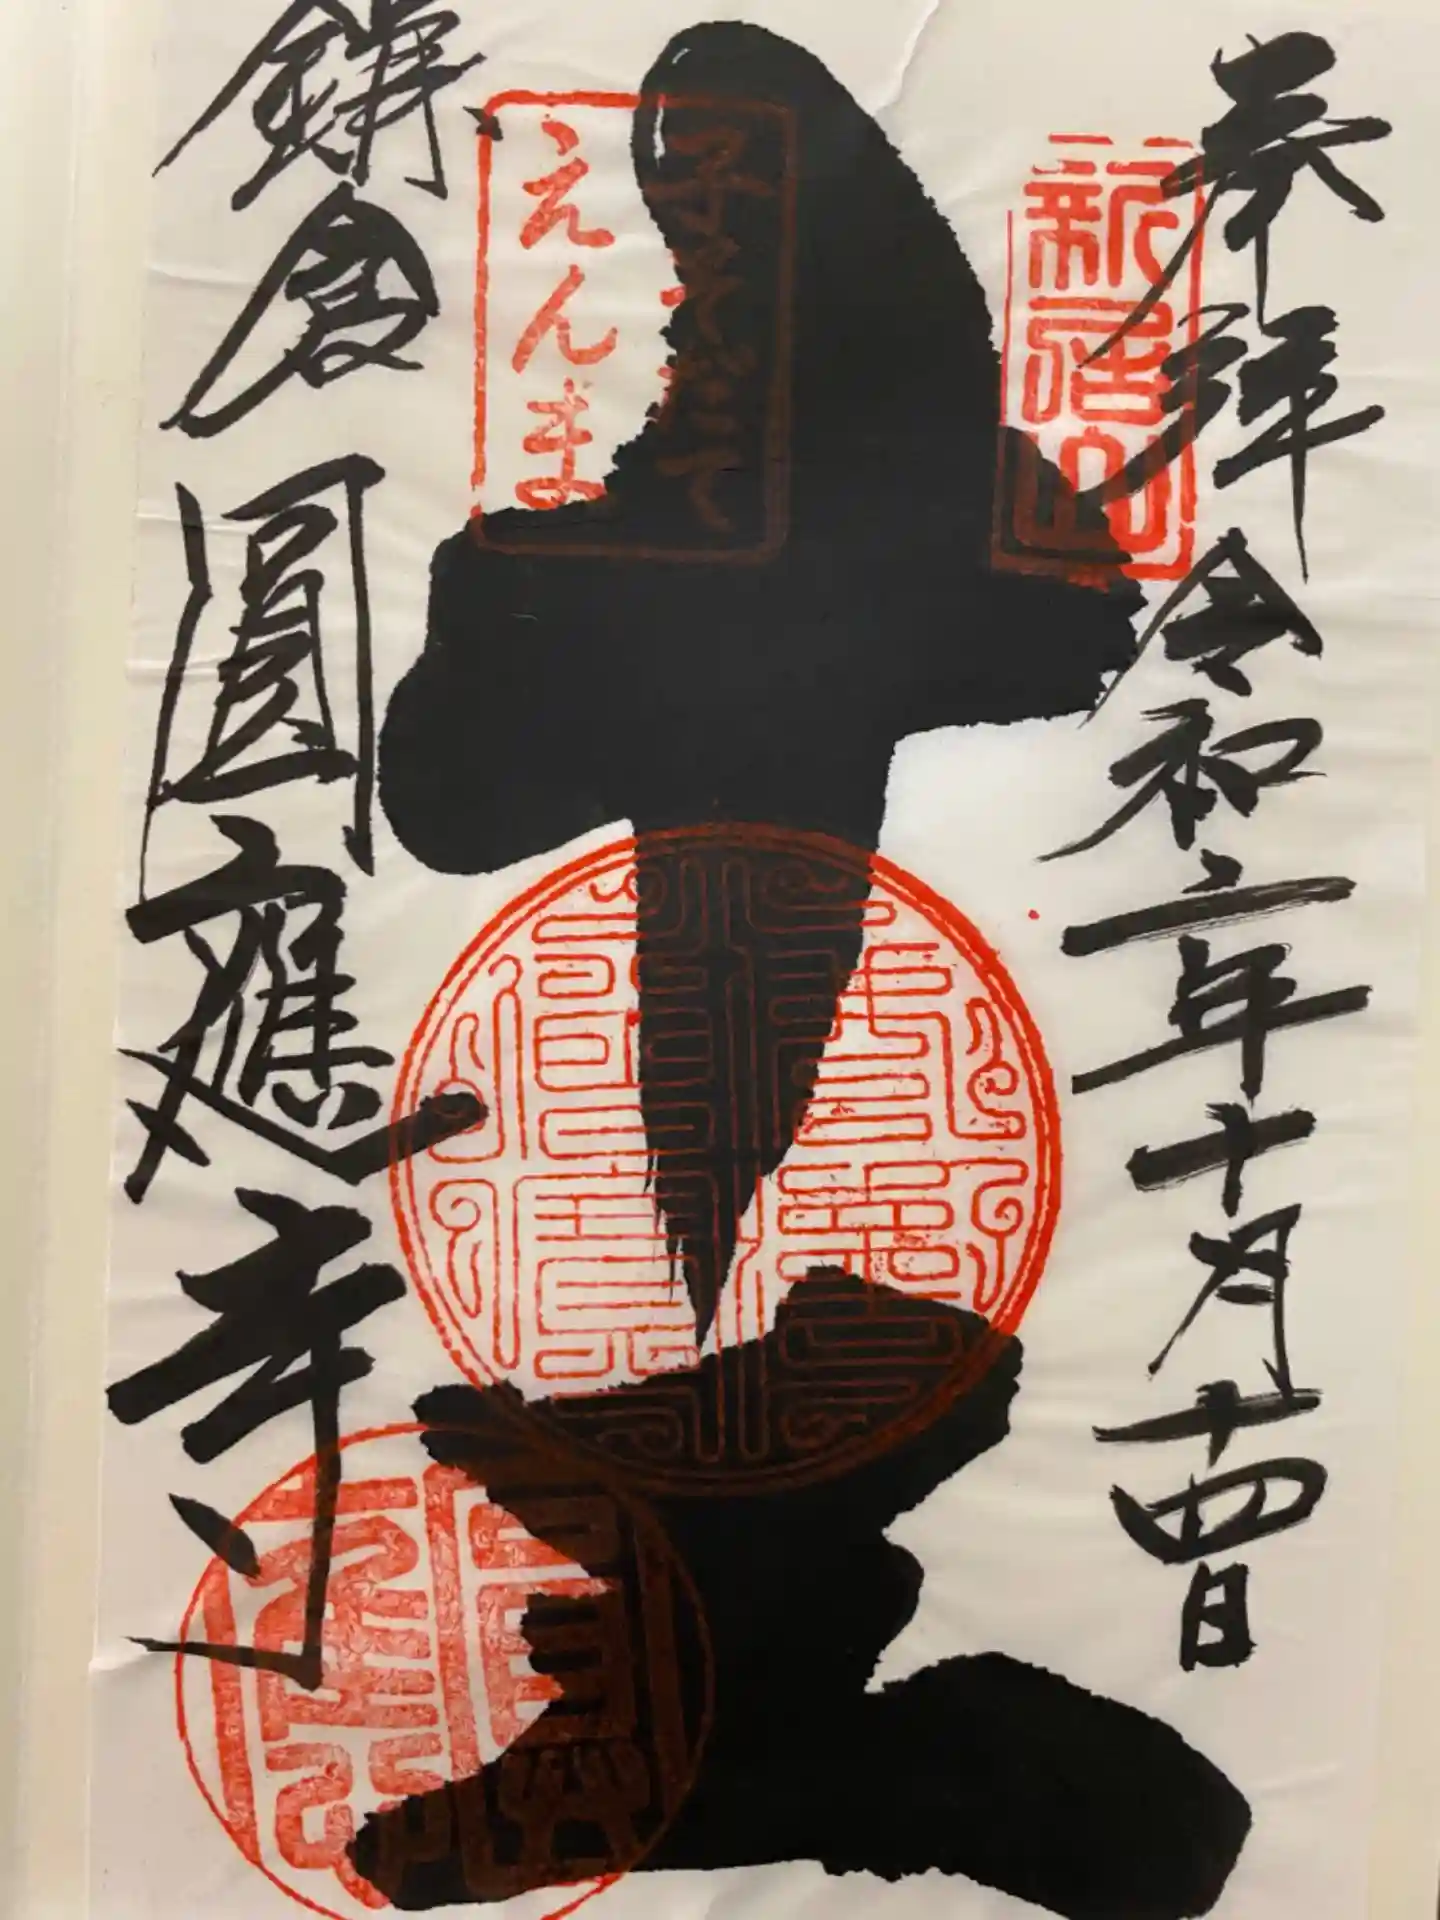 奉拝 令和二年十月十四日
新居山
十王
子そだて
えんま
鎌倉 圓應寺